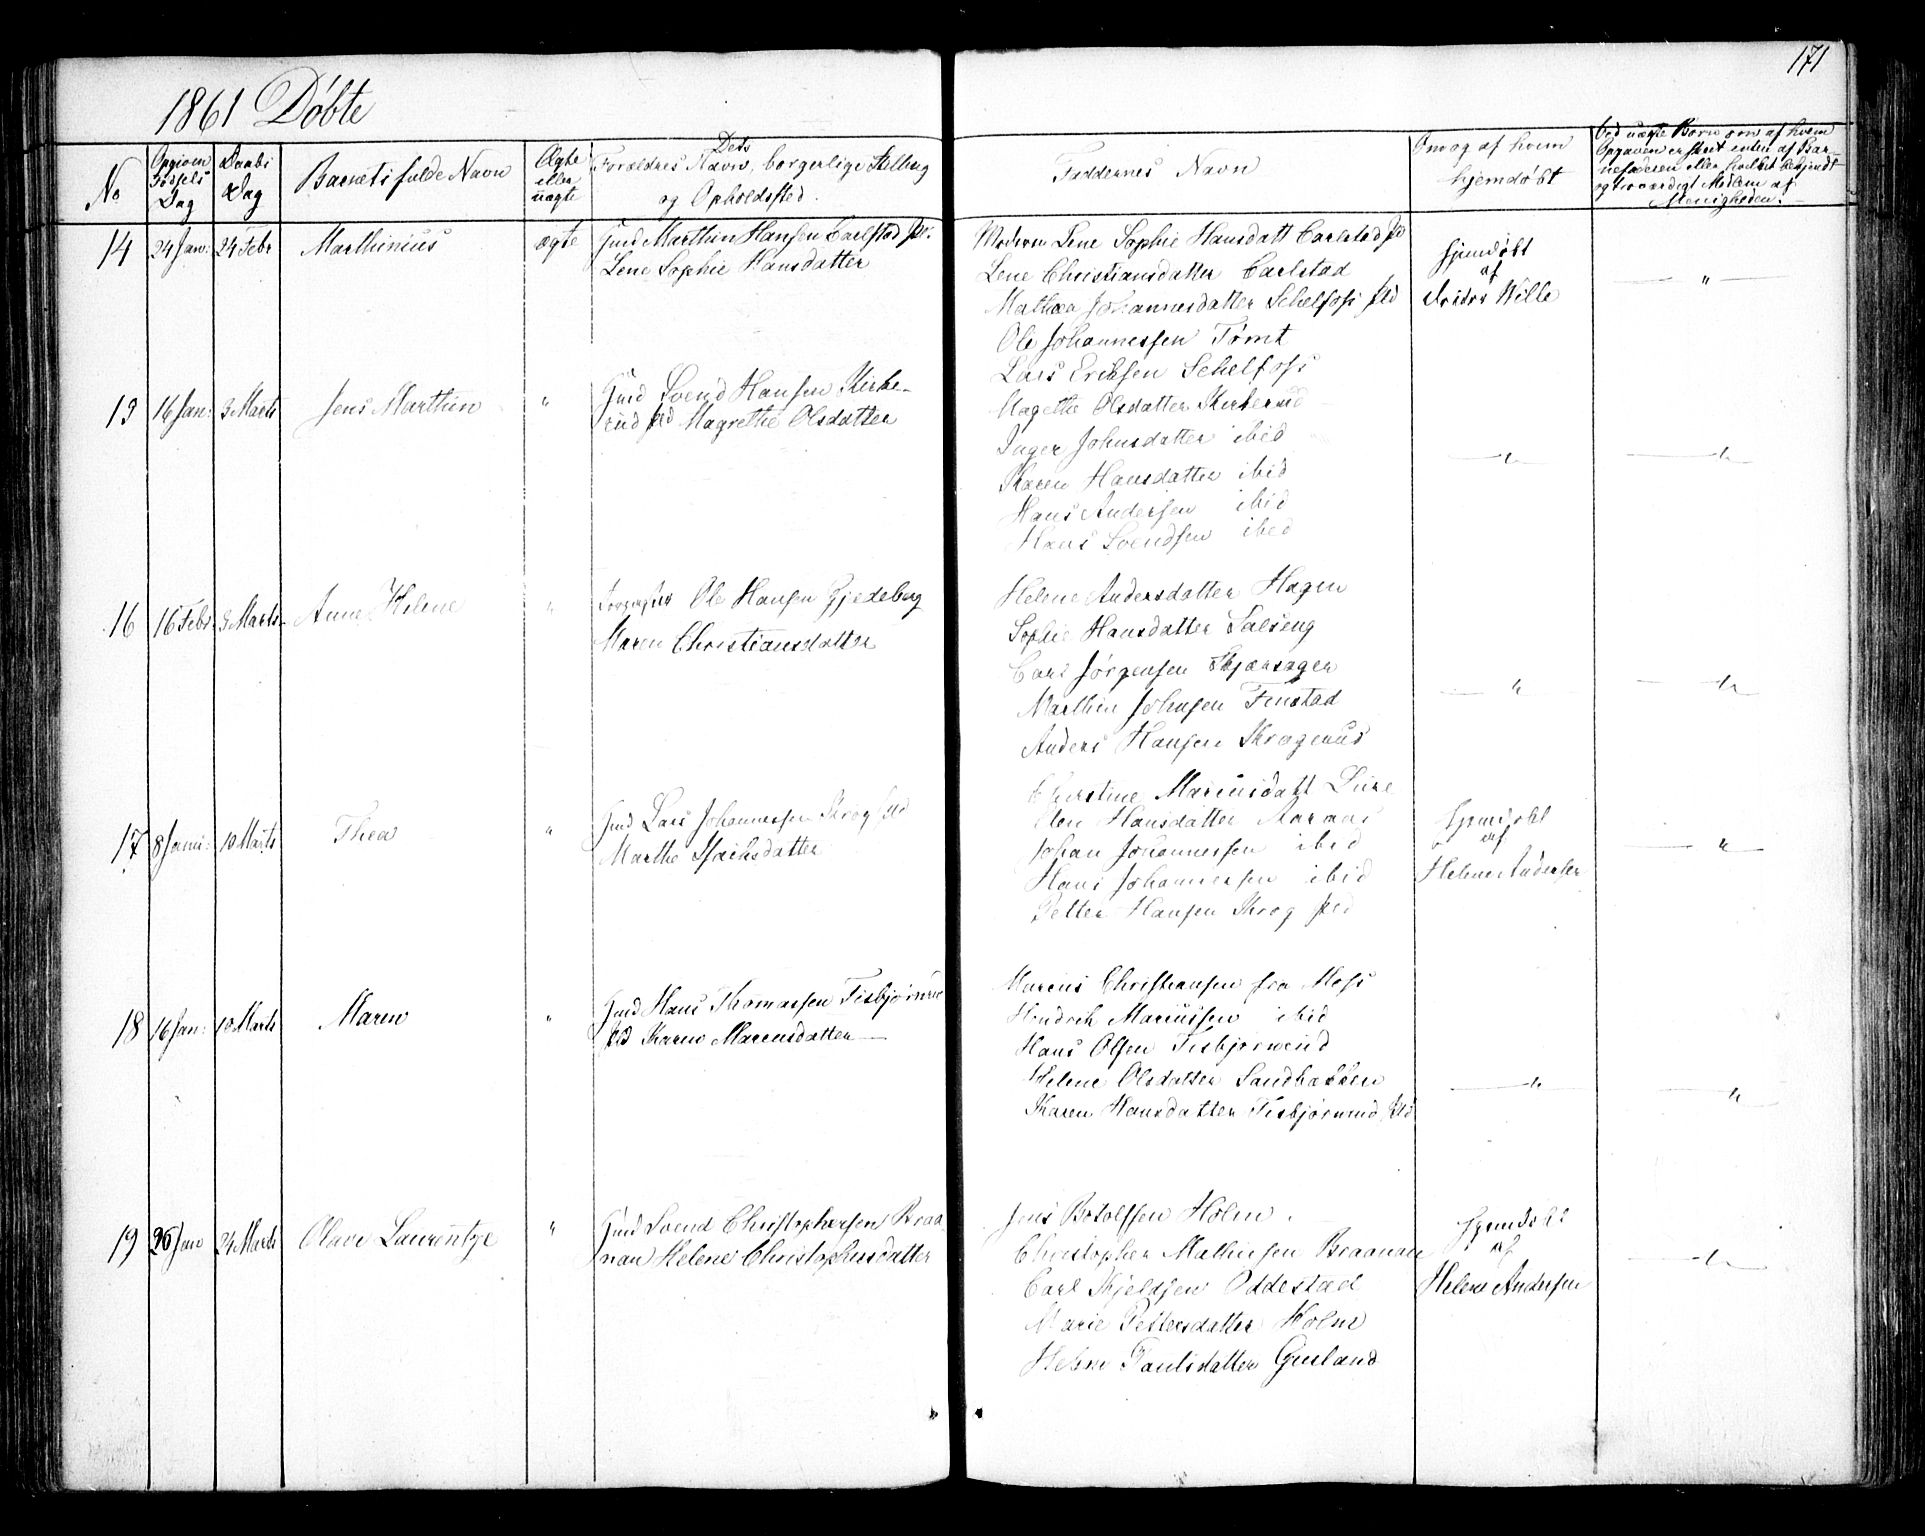 171
1861 Døbte
No
Opgiven Fødsels Dag
Daabs Dag
Barnets fulde Navn
Ægte eller uægte
Forældres Navn, Dets borgerlige Stilling
og Opholdssted.
Faddernes Navn
Om og af hvem
hjemdøbt
Ved uægte Børn om af hvem
Opgaven er skeet enten af Bar-
nefaderen eller hvilket bekjendt
og troværdigt Medlem af
Menigheden.
14 24 Jan: 24 Febr Marthinius ægte
Gmd Marthin Hansen Carlstad
Lene Sophie Hansdatter
Moderen Lene Sophie Hansdatt Carlstad pld
Lene Christiansdatter Carlstad
Mathea Johannesdatter Schelfoss pld
Ole Johannessen Tømt
Lars Eriksen Schelfoss
Hjemdøbt
af
Wille
"
15 16 Jan: 3 Marts Jens Marthin "
Gmd Svend Hansen Kirke-
rud pld Magrethe Olsdatter
Magethe Olsdatter Kirkerud
Inger Johnsdatter ibid
Karen Hansdatter ibid
Hans Andersen ibid
Hans Svendsen ibid
" "
16 16 Febr 3 Marts Anne Helene "
Ole Hansen Gjedeberg
Maren Christiansdatter
Helene Andersdatter Hagen
Sophie Hansdatter Salseng
Carl Jørgensen Skjærsager
Marthin Johnsen Finstad
Anders Hansen
" "
17 8 Janu: 10 Marts Thea "
Gmd Lars Johannessen Krog pld
Marthe Isachsdatter
Christine Marcusdatt
Elen Hansdatter Aaraas
Johan Johannessen ibid
Hans Johannessen ibid
Petter Hansen Krog pld
Hjemdøbt
af
Helene Andersen
"
18 16 Jan: 10 Marts Maren "
Gmd Hans Thomassen Tisbjørnrud
pld Karen Marcusdatter
Marcus Christiansen fra Moss
Hendrik Marcussen ibid
Hans Olsen Tisbjørnrud
Helene Olsdatter Sandbakken
Karen Hansdatter Tisbjørnrud pld
" "
19 26 Jan 24 Marts Olave Laurentze "
Gmd Svend Christophersen Braa-
nan Helene Christophersdatter
Jens Botolfsen Holm.
Christopher Mathiesen Braanan
Carl Kjeldsen Oddestad
Marie Pettersdatter Holm
Helene Paulsdatter
Hjemdøbt
af
Helene Andersen
"